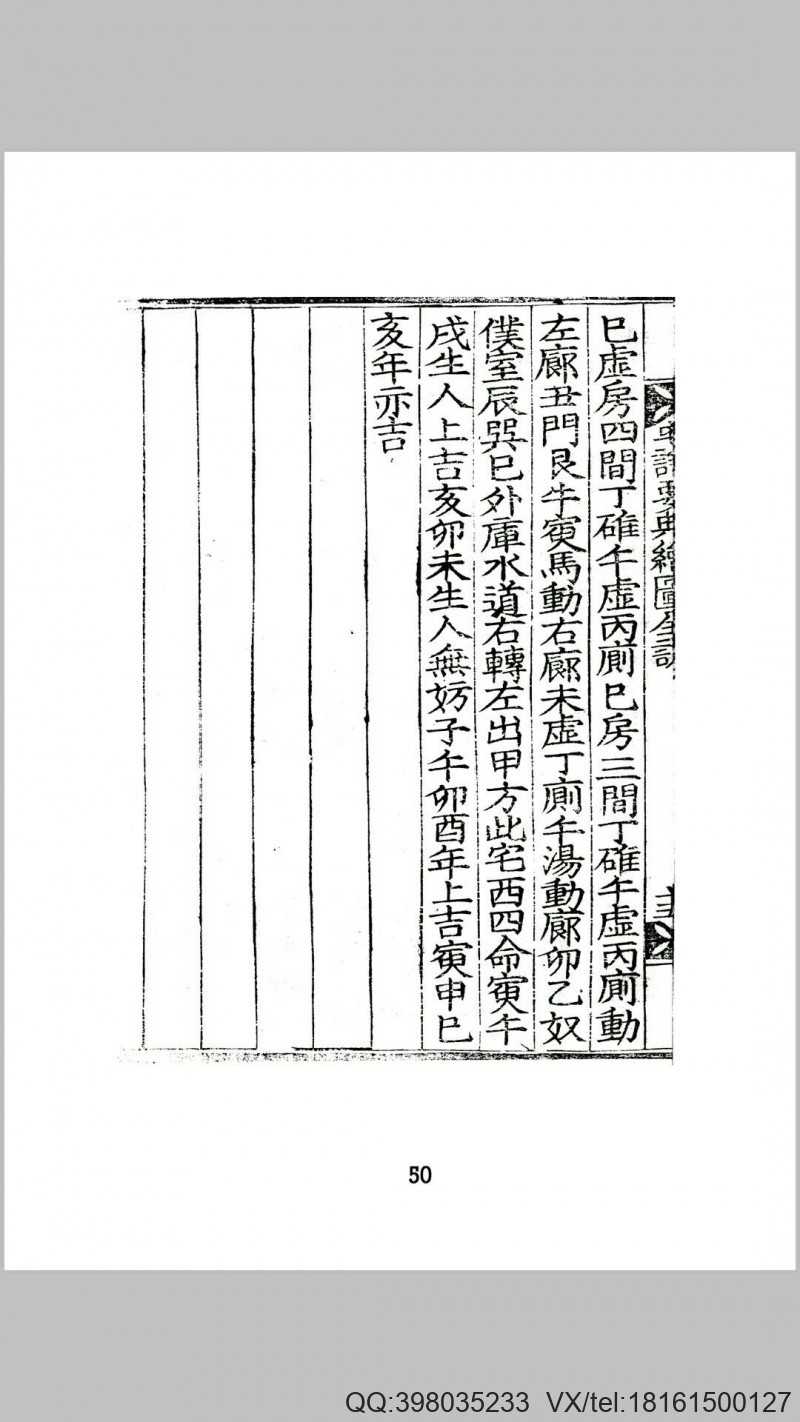 巳虛房四間丁碓午虛丙廁巳房三間丁碓午虛丙廁動
左廊丑門艮牛寅馬動右廊未虛丁廁午湯動廊卯乙奴
僕室辰巽巳外庫水道右轉左出甲方此宅西四命寅午
戌生人上吉亥卯未生人無妨子午卯酉年上吉寅申巳
亥年亦吉
50
QQ:398035233 VX/tel:18161500127